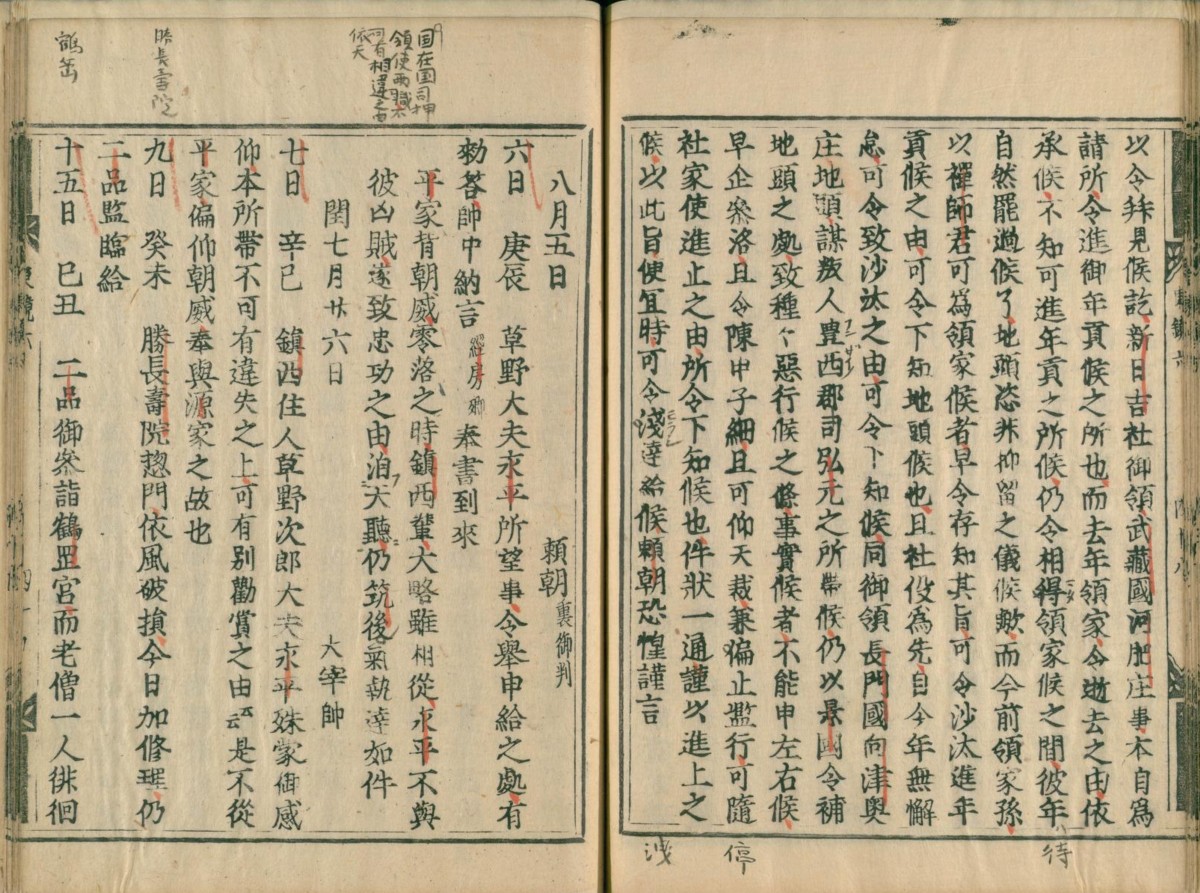 以令拜見候訖、新日吉社御領武藏國河肥庄事、本自爲
請所、令進御年貢候之所也、而去年領家、令逝去之由、依
承候、不知可進年貢之所候、仍令相得領家候之間、彼年
自然罷過候了、地頭恣非抑留之儀候歟、而今前領家孫、
以禪師君可爲領家候者、早令存知其旨、可令沙汰進年
貢候之由、可令下知地頭候也、且社役爲先、自今年無懈
怠、可令致沙汰之由、可令下知候、同御領長門國向津奥
庄地頭、謀叛人豊西郡司弘元之所帶候、仍以景國令補
地頭之處、致種々惡行候之條、事實候者、不能申左右候、
早企參洛、且令陳申子細、且可仰天裁、兼徧止濫行、可隨
社家使進止之由、所令下知候也、件狀一通謹以進上之
候、以此旨便宜時、可令淺達給候、賴朝恐惶謹言
待
停
洩
八月五日
賴朝裏御判
六日　庚辰　草野大夫永平所望事、令舉申給之處、有
勅答、帥中納言經房卿奉書到來
平家背朝威零落之時、鎮西輩、大略雖相從、永平不與
彼凶賊、遂致忠功之由、泊天聽、仍筑後氣執達如件
閏七月廿六日
大宰帥
七日　辛巳　鎮西住人草野次郎大夫永平殊蒙御感
仰、本所帶不可有違失之上、可有別勸賞之由云云是不從
平家、偏仰朝威、奉與源家之故也
九日　癸未　勝長壽院惣門、依風破損、今日加修理、仍
二品監臨給
十五日　己丑　二品御參詣鶴罡宮、而老僧一人徘徊
国在国司押
領使兩職不
可有相違之由
依天
勝長壽院
鶴岳